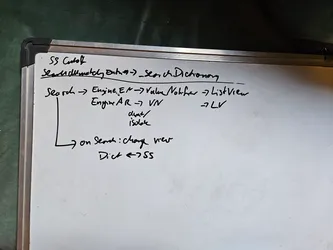 SS Cutoff
→ SearchDictionary
Search → Engine EN → ValueNotifier → ListView
Engine AR → VN → LV
isolate
→ on Search: change view
Dict ↔ SS